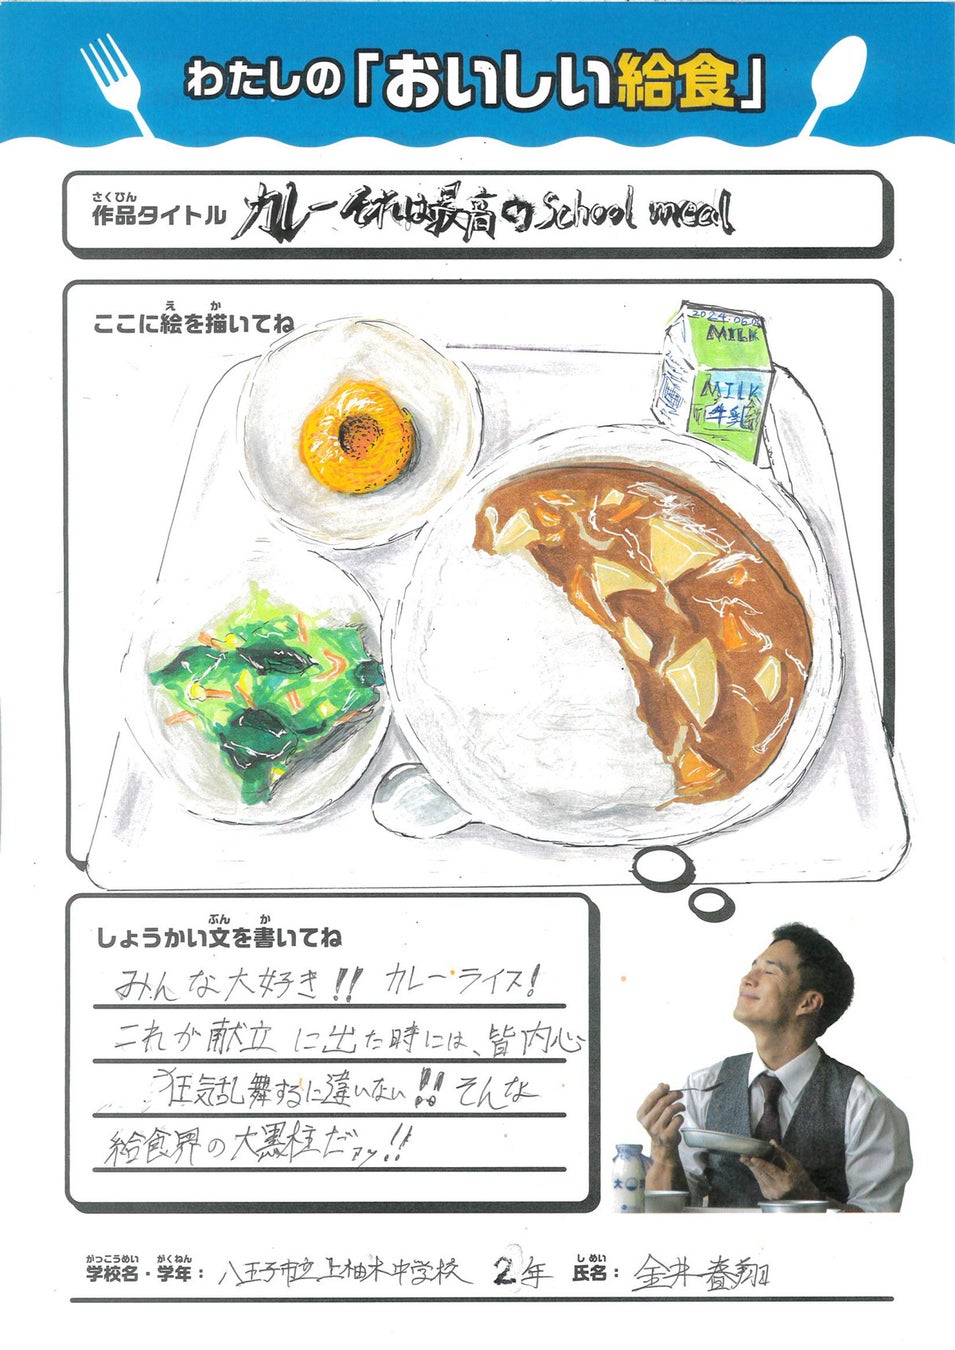 わたしの「おいしい給食」
さくひん
作品タイトル カレーそれは最高のSchool meal
え か
ここに絵を描いてね
2024.06.0
MILK
MILK
牛乳
ぶん か
しょうかい文を書いてね
みんな大好き!! カレーライス!
これが献立に出た時には、皆内心
狂気乱舞するに違いない!! そんな
給食界の大黒柱だァッ!!
大
がっこうめい がくねん しめい
学校名・学年: 八王子市立上柚木中学校 2年 氏名: 金井春翔